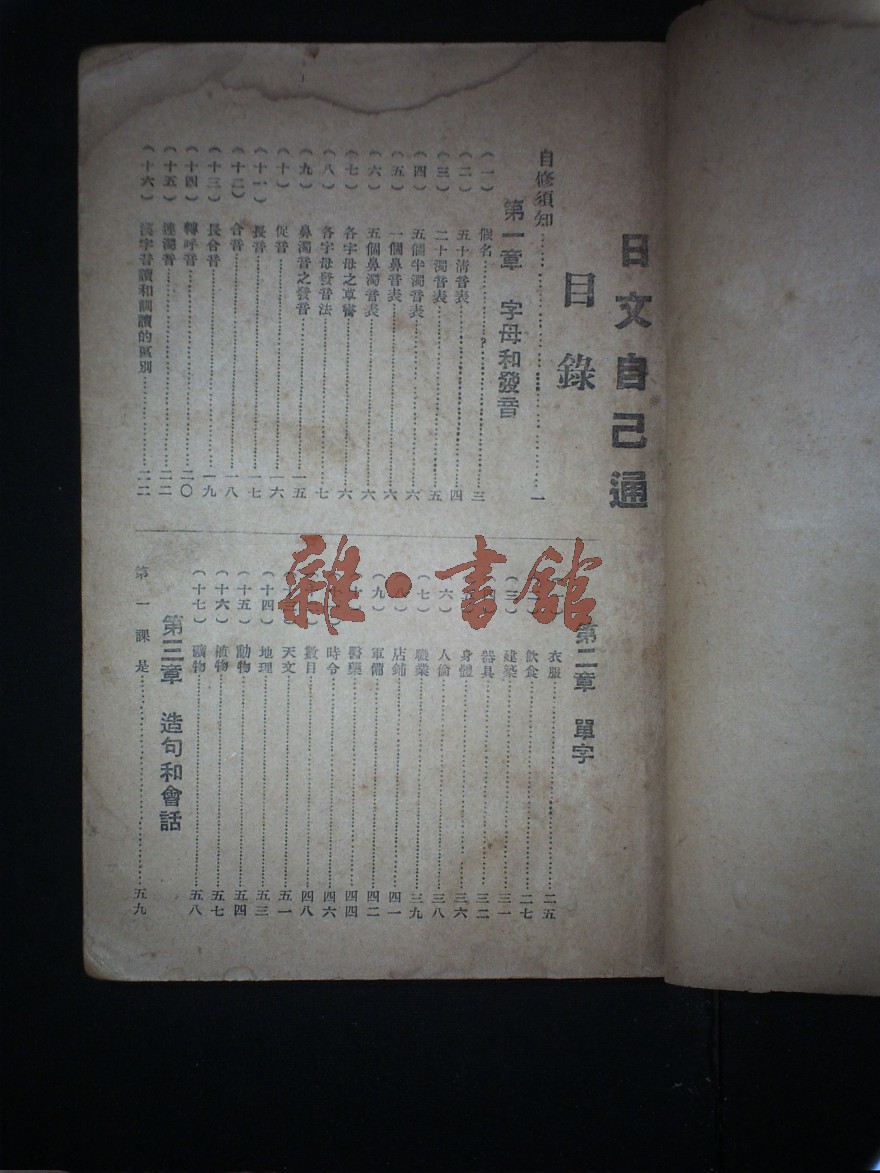 日文自己通
目錄
自修須知 一
第一章 字母和發音
（一） 假名 三
（二） 五十清音表 四
（三） 二十濁音表 五
（四） 五個半濁音表 六
（五） 一個鼻音表 六
（六） 五個鼻濁音表 六
（七） 各字母之草書 六
（八） 各字母發音法 七
（九） 鼻濁音之發音 一五
（十） 促音 一六
（十一） 長音 一七
（十二） 合音 一八
（十三） 長合音 一九
（十四） 轉呼音 二〇
（十五） 連濁音 二二
（十六） 漢字音讀和訓讀的區別 二二
第二章 單字
衣服 二五
飲食 二七
（三） 建築 三一
器具 三二
身體 三六
（六） 人倫 三八
（七） 職業 三九
店鋪 四一
（九） 軍備 四二
醫藥 四四
時令 四六
數目 四八
天文 五一
（十四） 地理 五三
（十五） 動物 五四
（十六） 植物 五七
（十七） 礦物 五八
第三章 造句和會話
第一課 是 五九
雜·書館